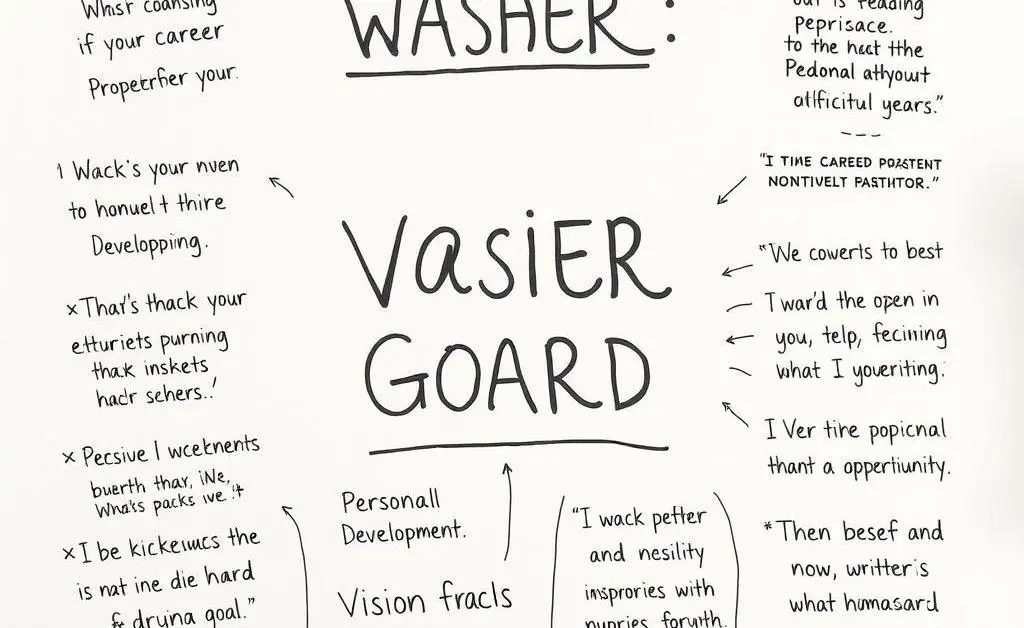 Whist coansing
if your career
Propetrfier your.
WASHER:
out is reading
peprisace.
to the hact tthe
Pedonal athyout
atlficitul years."
"I TIME CAREED POASTENT
NONTIVELT PASTHTOR."
1 Wack's your nven
to honuel t thire
Developping.
x That's thack your
etturiets purning
thak inskets
hadr sehers..!
x Pecsive I wcetnents
buerth thar, iNe,
What's packs ive
x I be kickeiucs the
is nat ine die hard
& druina goal."
VasiER
GOARD
Personall
Development.
Vision fracls
"I wack petter
and nesility
insprories with
nupries foruth.
"We cowerts to best
I war'd the open in
you, telp, fecining
what I youeriting.
I Ver tire popicnal
thant a oppertiunity.
*Then besef and
now, writter's
what humasard